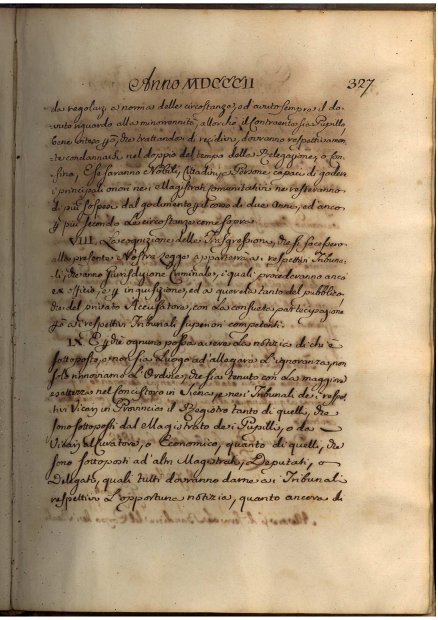 Anno MDCCCII 327
da regolarsi a norma delle circostanze, ed avuto sempre il do-
vuto riguardo alla minorennità, allorchè il Contraente sia Pupillo,
bene inteso, che trattandosi di recidivi, dovranno respettivamen-
te condannarsi nel doppio del tempo della Relegazione, o Con-
fino, e se saranno Nobili, Cittadini, o Persone capaci di godere
i principali onori nei Magistrati Comunitativi ne resteranno
di più sospesi dal godimento per il corso di due Anni, ed anco
più secondo le circostanze come sopra
VIII. La cognizione delle Trasgressioni, che si facessero
alla presente Nostra Legge apparterrà ai respettivi Tribuna-
li, che anno Giurisdizione Criminale, i quali procederanno anco
ex officio, e per inquisizione, ed a querela tanto del pubblico
che del privato Accusatore, con la consueta partecipazione
ai respettivi Tribunali superiori competenti.
IX. E perchè ognuno possa avere la notizia di chi è
sottoposto, e non sia luogo ad allegare l'ignoranza, non
solo rinnoviamo l'Ordine, che sia tenuto con la maggiore
esattezza nel in Siena, e nei Tribunali dei respet-
tivi Vicari in Provincia il Registro tanto di quelli, che
sono sottoposti dal Magistrato dei Pupilli, o da
Vicari al Curatore, o Economico, quanto di quelli, che
sono sottoposti ad altri Magistrati, Deputati, o
Delegati, quali tutti dovranno darne ai Tribunali
respettivi l'opportuna notizia, quanto ancora di